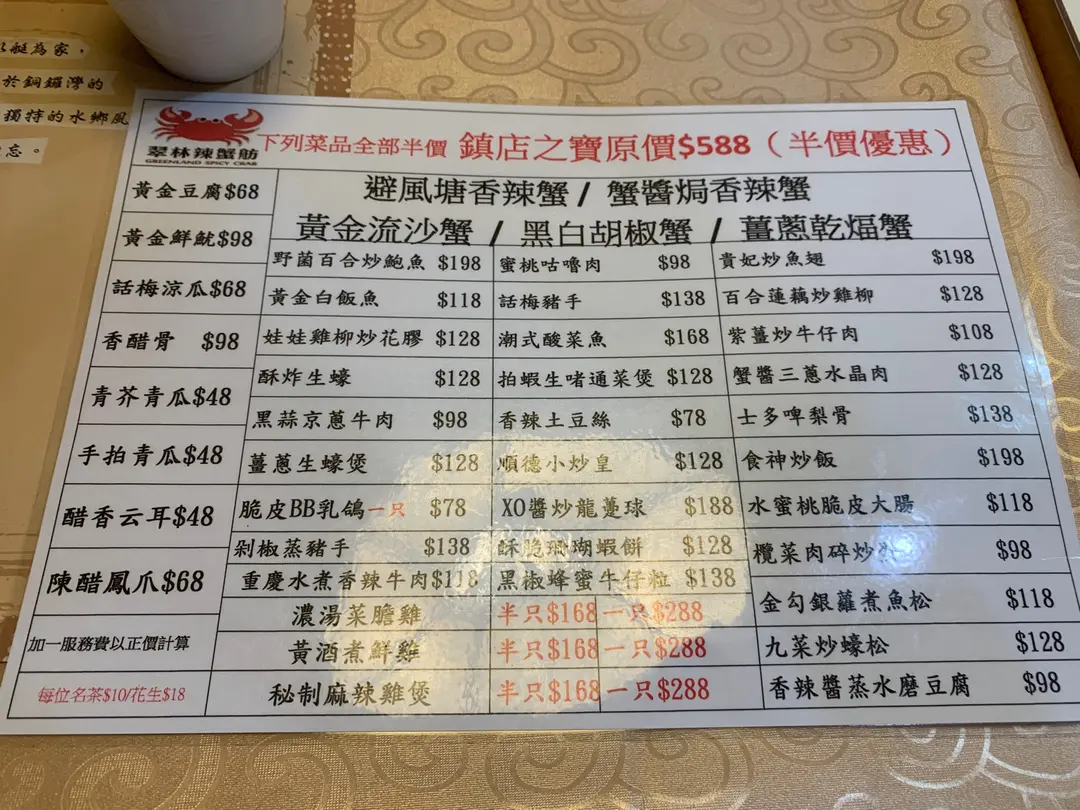 艇為家，
於銅鑼灣的
獨特的水鄉風
忘。
翠林辣蟹舫
GREENLAND SPICY CRAB
下列菜品全部半價 鎮店之寶原價$588（半價優惠）
避風塘香辣蟹 / 蟹醬焗香辣蟹
黃金流沙蟹 / 黑白胡椒蟹 / 薑蔥乾煏蟹
黃金豆腐$68
黃金鮮魷$98
話梅涼瓜$68
香醋骨 $98
青芥青瓜$48
手拍青瓜$48
醋香云耳$48
陳醋鳳爪$68
加一服務費以正價計算
每位名茶$10/花生$18
野菌百合炒鮑魚 $198 蜜桃咕嚕肉 $98 貴妃炒魚翅 $198
黃金白飯魚 $118 話梅豬手 $138 百合蓮藕炒雞柳 $128
娃娃雞柳炒花膠 $128 潮式酸菜魚 $168 紫薑炒牛仔肉 $108
酥炸生蠔 $128 拍蝦生啫通菜煲 $128 蟹醬三蔥水晶肉 $128
黑蒜京蔥牛肉 $98 香辣土豆絲 $78 士多啤梨骨 $138
薑蔥生蠔煲 $128 順德小炒皇 $128 食神炒飯 $198
脆皮BB乳鴿一只 $78 XO醬炒龍躉球 $188 水蜜桃脆皮大腸 $118
剁椒蒸豬手 $138 酥脆珊瑚蝦餅 $128 欖菜肉碎炒 $98
重慶水煮香辣牛肉$118 黑椒蜂蜜牛仔粒 $138 金勾銀蘿煮魚松 $118
濃湯菜膽雞 半只$168 一只$288
黃酒煮鮮雞 半只$168 一只$288 九菜炒蠔松 $128
秘制麻辣雞煲 半只$168 一只$288 香辣醬蒸水磨豆腐 $98